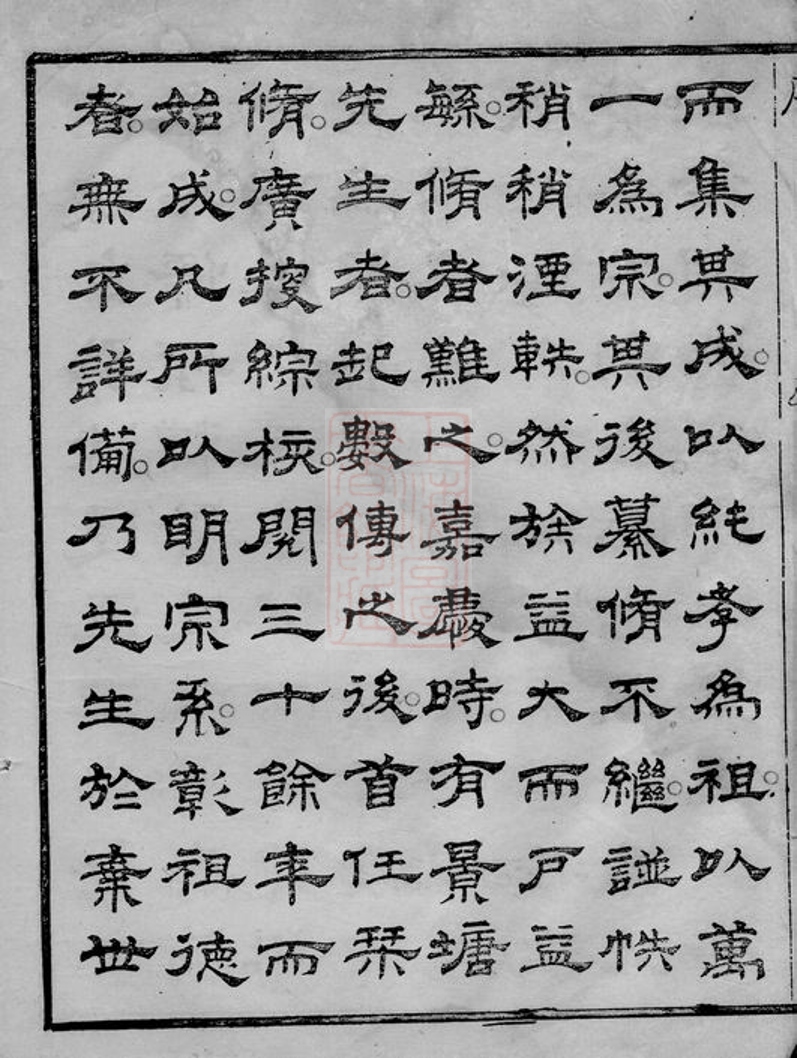 而集其成。以純孝爲祖。以萬
一爲宗。其後纂脩不繼。譜帙
稍稍湮軼。然族益大而戶益
緐。脩者難之。嘉慶時。有景塘
先生者。起數傳之後。首任栞
脩。廣搜綜核。閱三十餘年而
始成。凡所以明宗系。彰祖德
者。無不詳備。乃先生於棄世